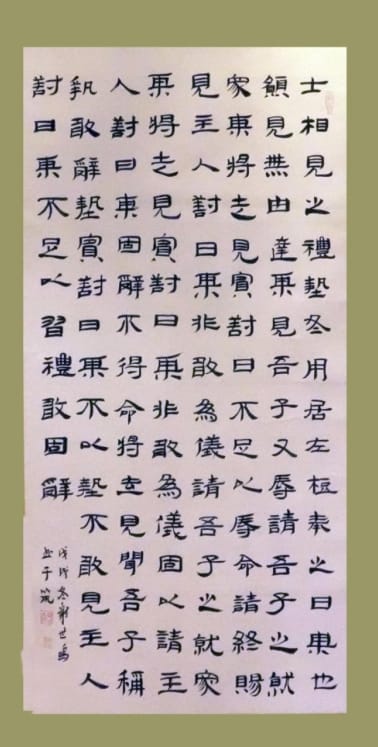 士相見之禮摯冬用居左梪奉之曰某也
願見無由達某見吾子又辱請吾子之就
家某將走見賓對曰不足以辱命請終賜
見主人對曰某非敢為儀請吾子之就家
某將走見賓對曰某非敢為儀固以請主
人對曰某固辭不得命將走見聞吾子稱
執敢辭摯賓對曰某不以摯不敢見主人
對曰某不足以習禮敢固辭
戊戌冬
書于筑